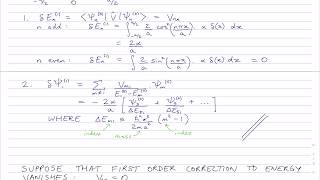 1. δEₙ⁽¹⁾ = ⟨Ψₙ⁽⁰⁾|V̂|Ψₙ⁽⁰⁾⟩ = Vₙₙ
n odd: δEₙ⁽¹⁾ = ∫ 2/a cos²(nπx/a) α δ(x) dx
= 2α/a
n even: δEₙ⁽¹⁾ = ∫ 2/a sin²(nπx/a) α δ(x) dx = 0
2. δΨ₁⁽¹⁾ = Σ Vₘₙ/ΔEₘₙ Ψₘ⁽⁰⁾
= - 2α/a [ Ψ₃⁽⁰⁾/ΔE₃₁ + Ψ₅⁽⁰⁾/ΔE₅₁ + ... ]
WHERE ΔEₘ₁ = ħ²π²/2ma² (m² - 1)
index mass index
SUPPOSE THAT FIRST ORDER CORRECTION TO ENERGY
VANISHES: = 0